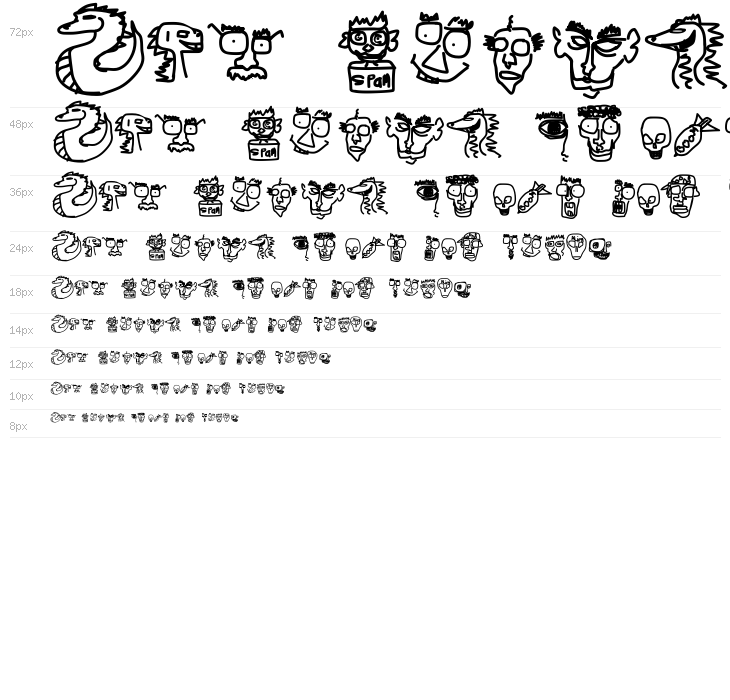 72px
SPAM
48px
SPAM
36px
SPAM
24px
18px
14px
12px
10px
8px